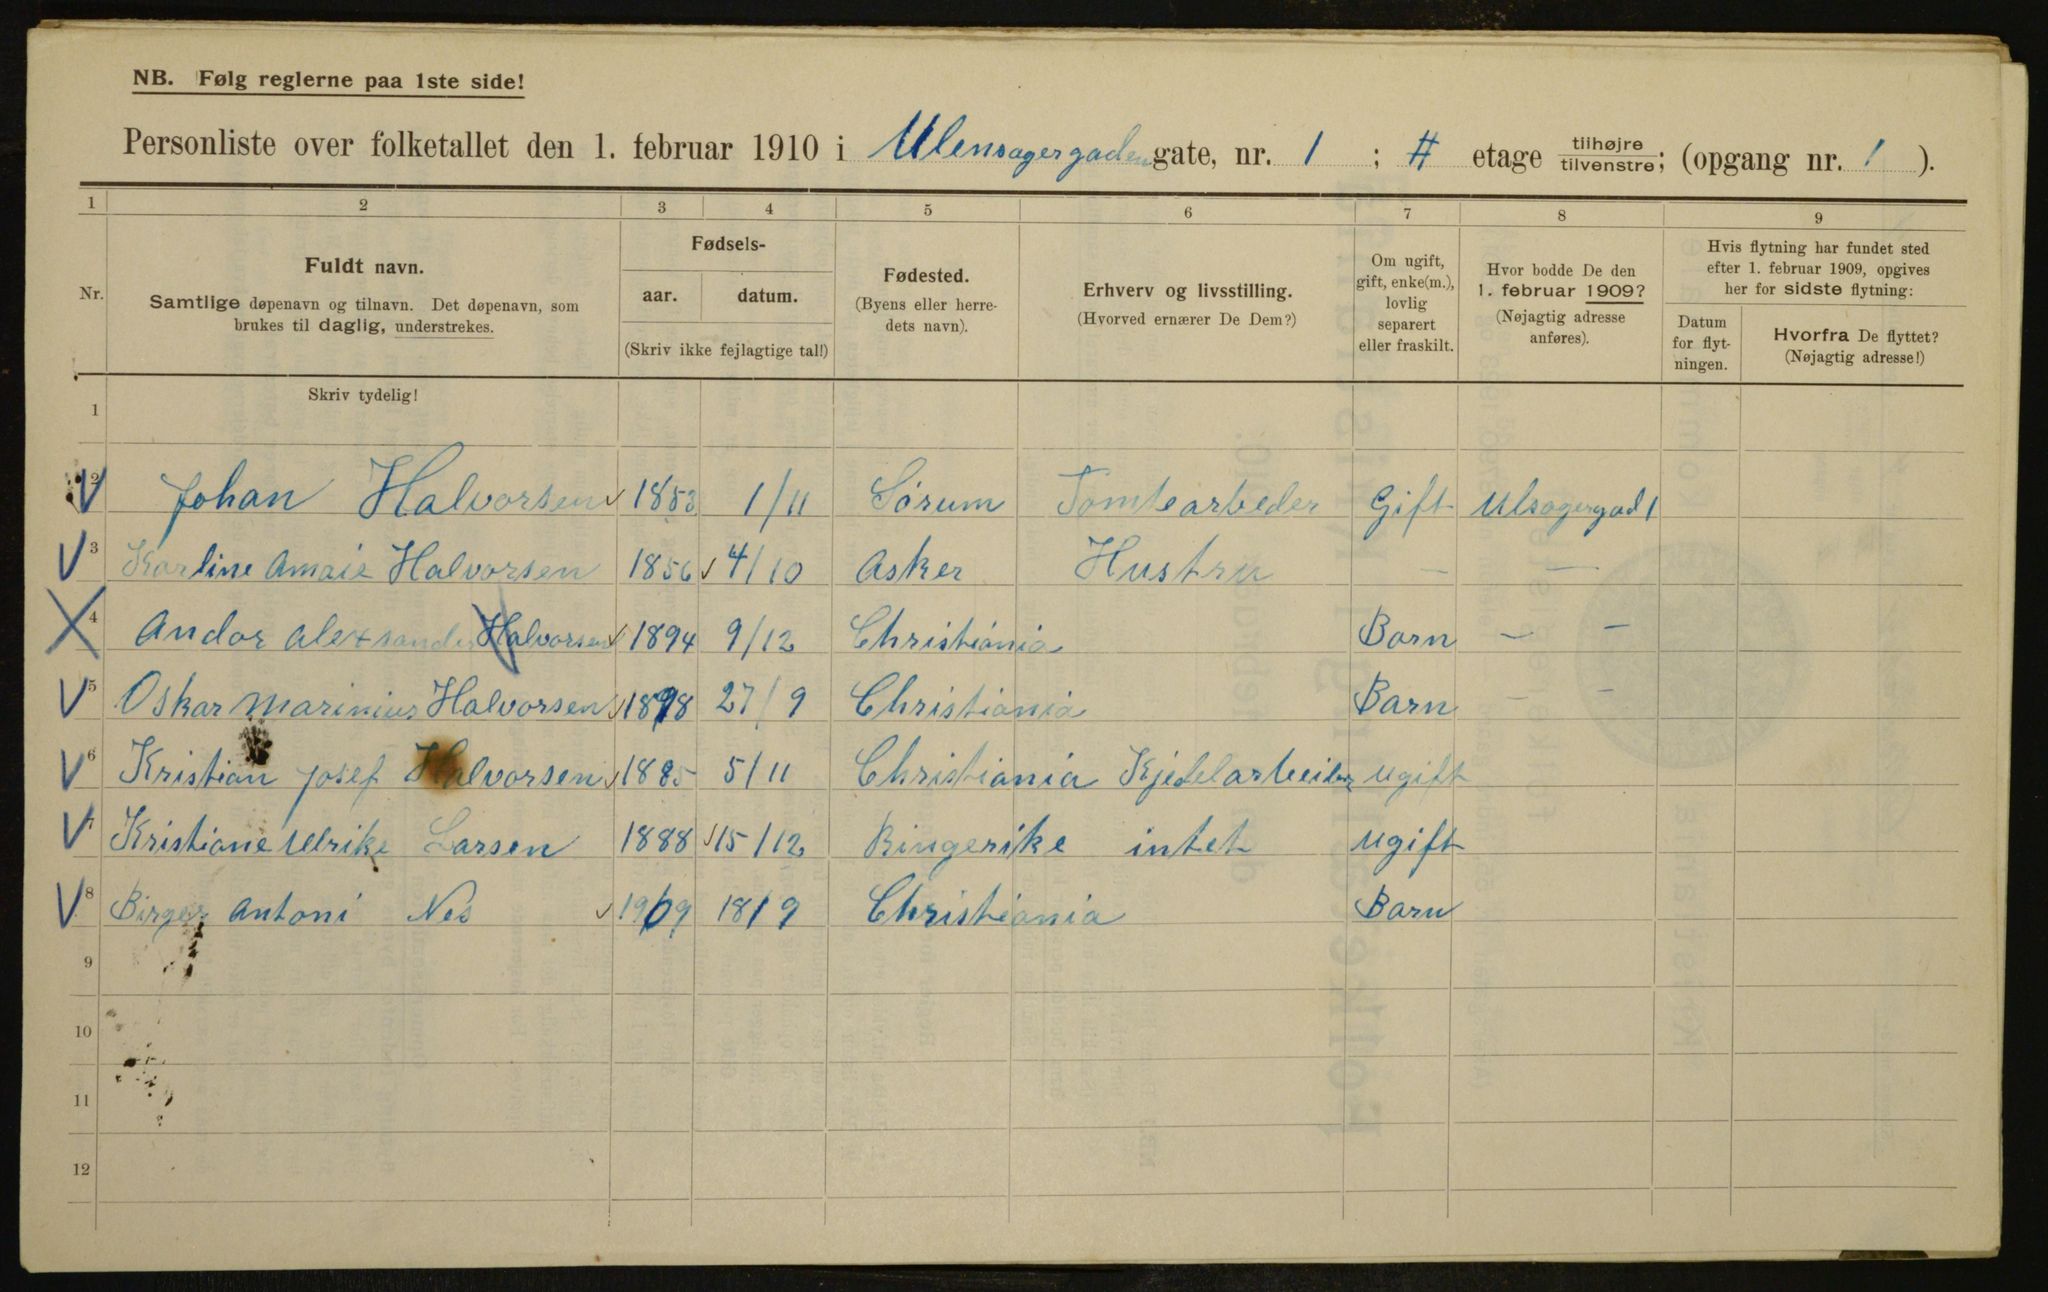 NB. Følg reglerne paa 1ste side!
Personliste over folketallet den 1. februar 1910 i Ulensagergaden gate, nr. 1 ; # etage tilhøjre tilvenstre; (opgang nr. 1 ).
1 2 3 4 5 6 7 8 9
Nr.
Fuldt navn.
Samtlige døpenavn og tilnavn. Det døpenavn, som
brukes til daglig, understrekes.
Fødsels-
aar. datum.
(Skriv ikke fejlagtige tal!)
Fødested.
(Byens eller herre-
dets navn).
Erhverv og livsstilling.
(Hvorved ernærer De Dem?)
Om ugift,
gift, enke(m.),
lovlig
separert
eller fraskilt.
Hvor bodde De den
1. februar 1909?
(Nøjagtig adresse
anføres).
Hvis flytning har fundet sted
efter 1. februar 1909, opgives
her for sidste flytning:
Datum
for flyt-
ningen.
Hvorfra De flyttet?
(Nøjagtig adresse!)
Skriv tydelig!
1
2 Johan Halvorsen 1853 1/11 Sørum Tomtearbeder Gift Ulsagergad 1
3 Karline Amaie Halvorsen 1856 4/10 Asker Hustru — —
4 Andor Alexsander Halvorsen 1894 9/12 Christiania Barn — —
5 Oskar Marinius Halvorsen 1898 27/9 Christiania Barn - -
6 Kristian Josef Halvorsen 1885 5/11 Christiania Kjedelarbeider ugift
7 Kristiane Ulrike Larsen 1888 15/12 Ringerike intet ugift
8 Birger Antoni Nes 1909 18/9 Christiania Barn
9
10
11
12